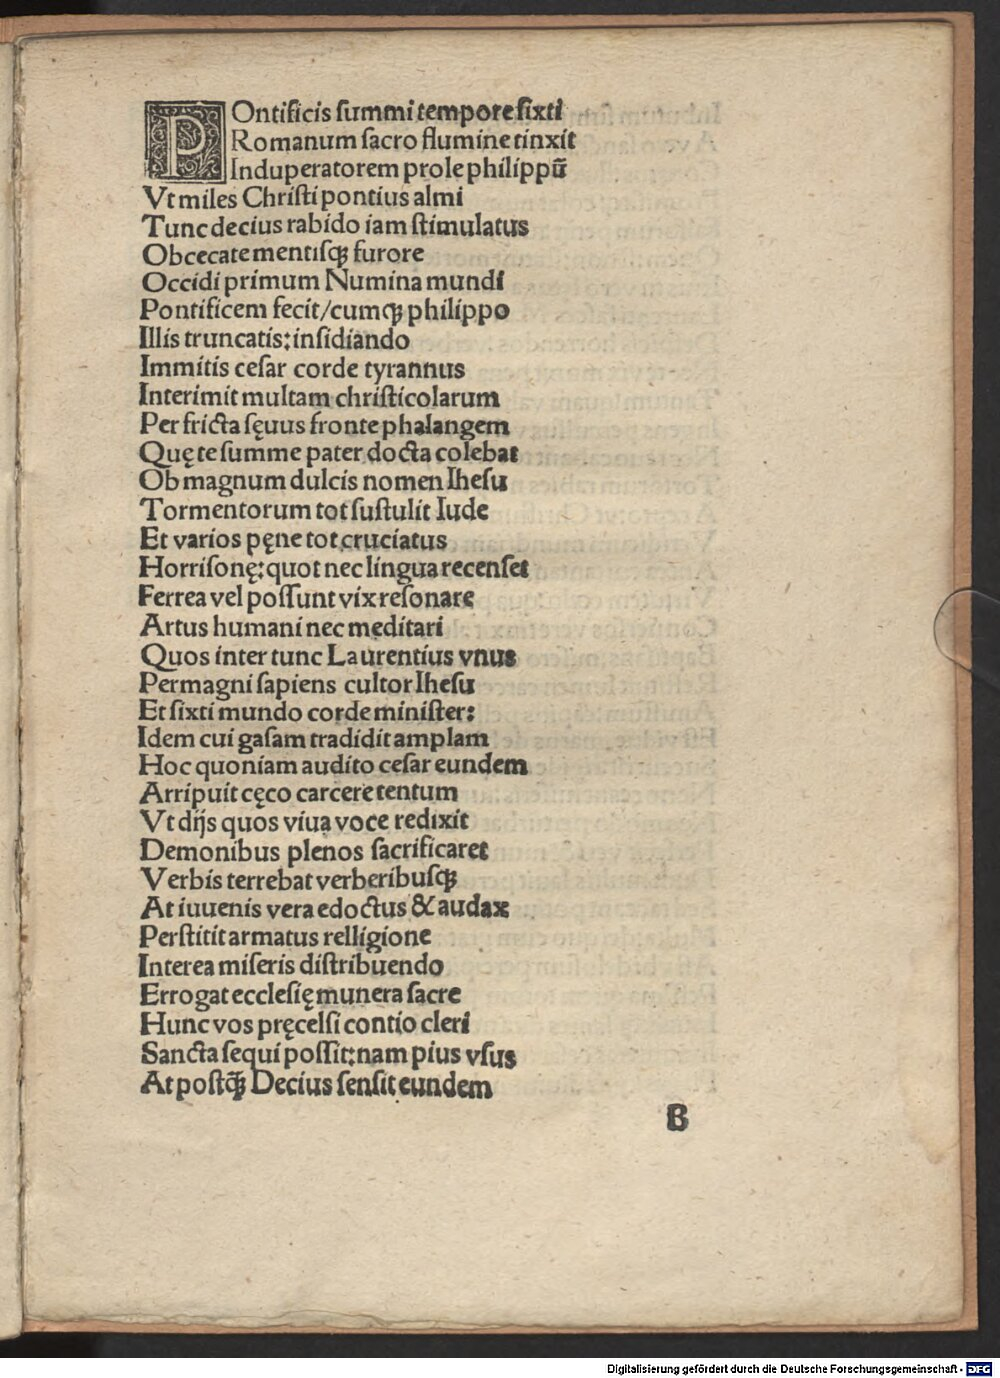 POntificis summi tempore sixti
Romanum sacro flumine tinxit
Induperatorem prole philippū
Vt miles Christi pontius almi
Tunc decius rabido iam stimulatus
Obcecate mentisqꝫ furore
Occidi primum Numina mundi
Pontificem fecit/cumqꝫ philippo
Illis truncatis: insidiando
Immitis cesar corde tyrannus
Interimit multam christicolarum
Per fricta sęuus fronte phalangem
Quę te summe pater docta colebat
Ob magnum dulcis nomen Ihesu
Tormentorum tot sustulit Iude
Et varios pęne tot cruciatus
Horrisonę: quot nec lingua recenset
Ferrea vel possunt vix resonare
Artus humani nec meditari
Quos inter tunc Laurentius vnus
Permagni sapiens cultor Ihesu
Et sixti mundo corde minister:
Idem cui gasam tradidit amplam
Hoc quoniam audito cesar eundem
Arripuit cęco carcere tentum
Vt dijs quos viua voce redixit
Demonibus plenos sacrificaret
Verbis terrebat verberibusqꝫ
At iuuenis vera edoctus & audax
Perstitit armatus relligione
Interea miseris distribuendo
Errogat ecclesię munera sacre
Hunc vos pręcelsi contio cleri
Sancta sequi possit: nam pius vsus
At postq̄ꝫ Decius sensit eundem
B
Digitalisierung gefördert durch die Deutsche Forschungsgemeinschaft - DFG